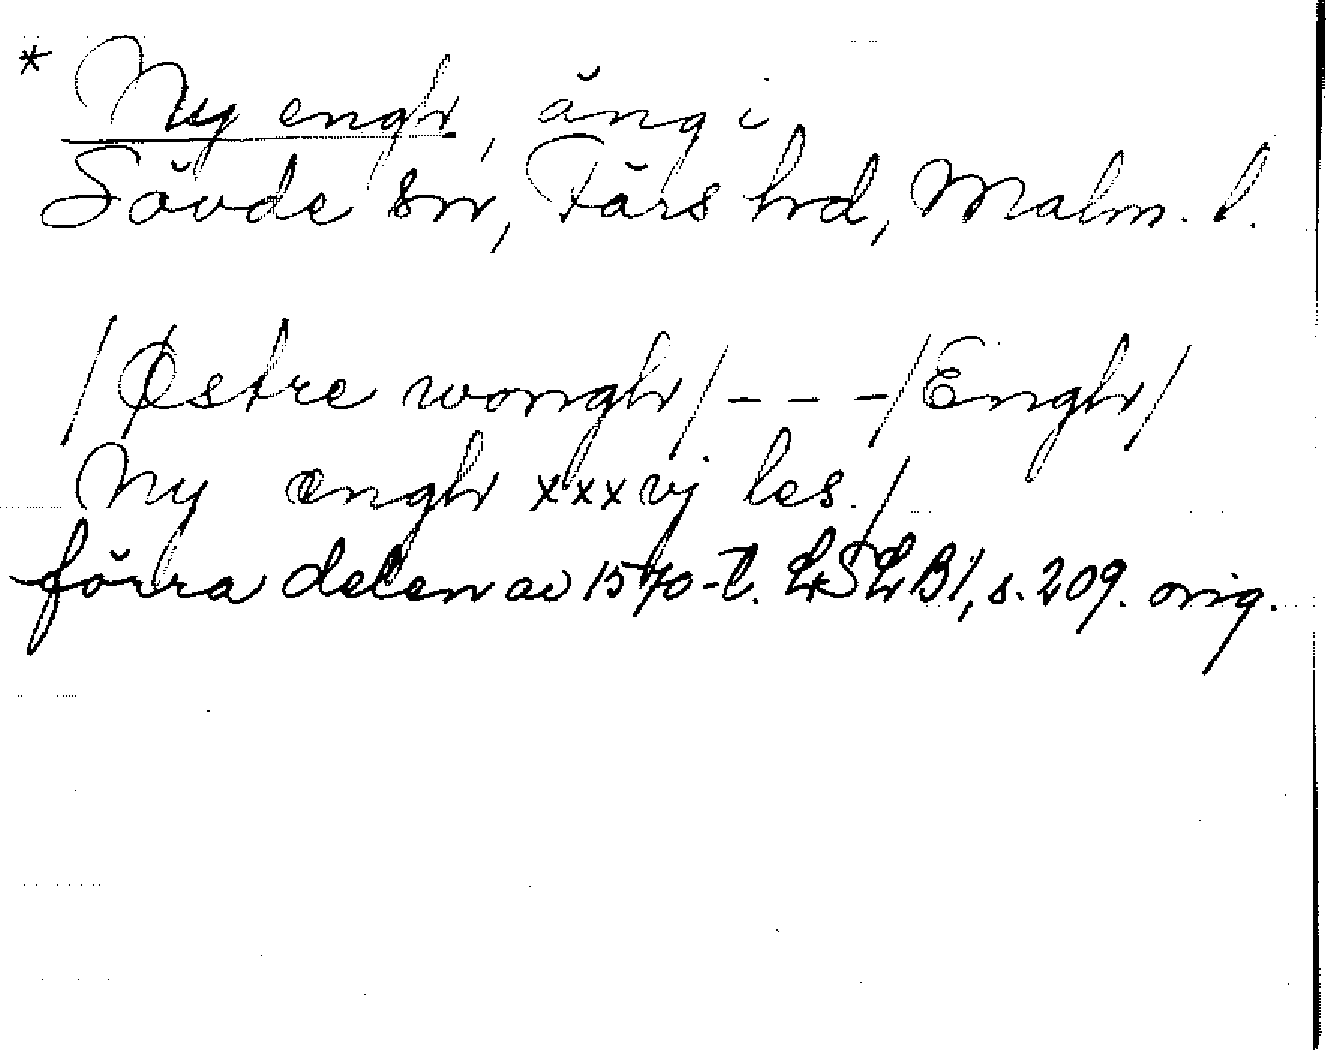 * Ny engh, äng i
Sövde sn, Färs hrd, Malm. l.
/Østre wongh/ - - - /Engh/
Ny engh xxxvj les./
förra delen av 1570-t. LSLB1, s. 209. orig.